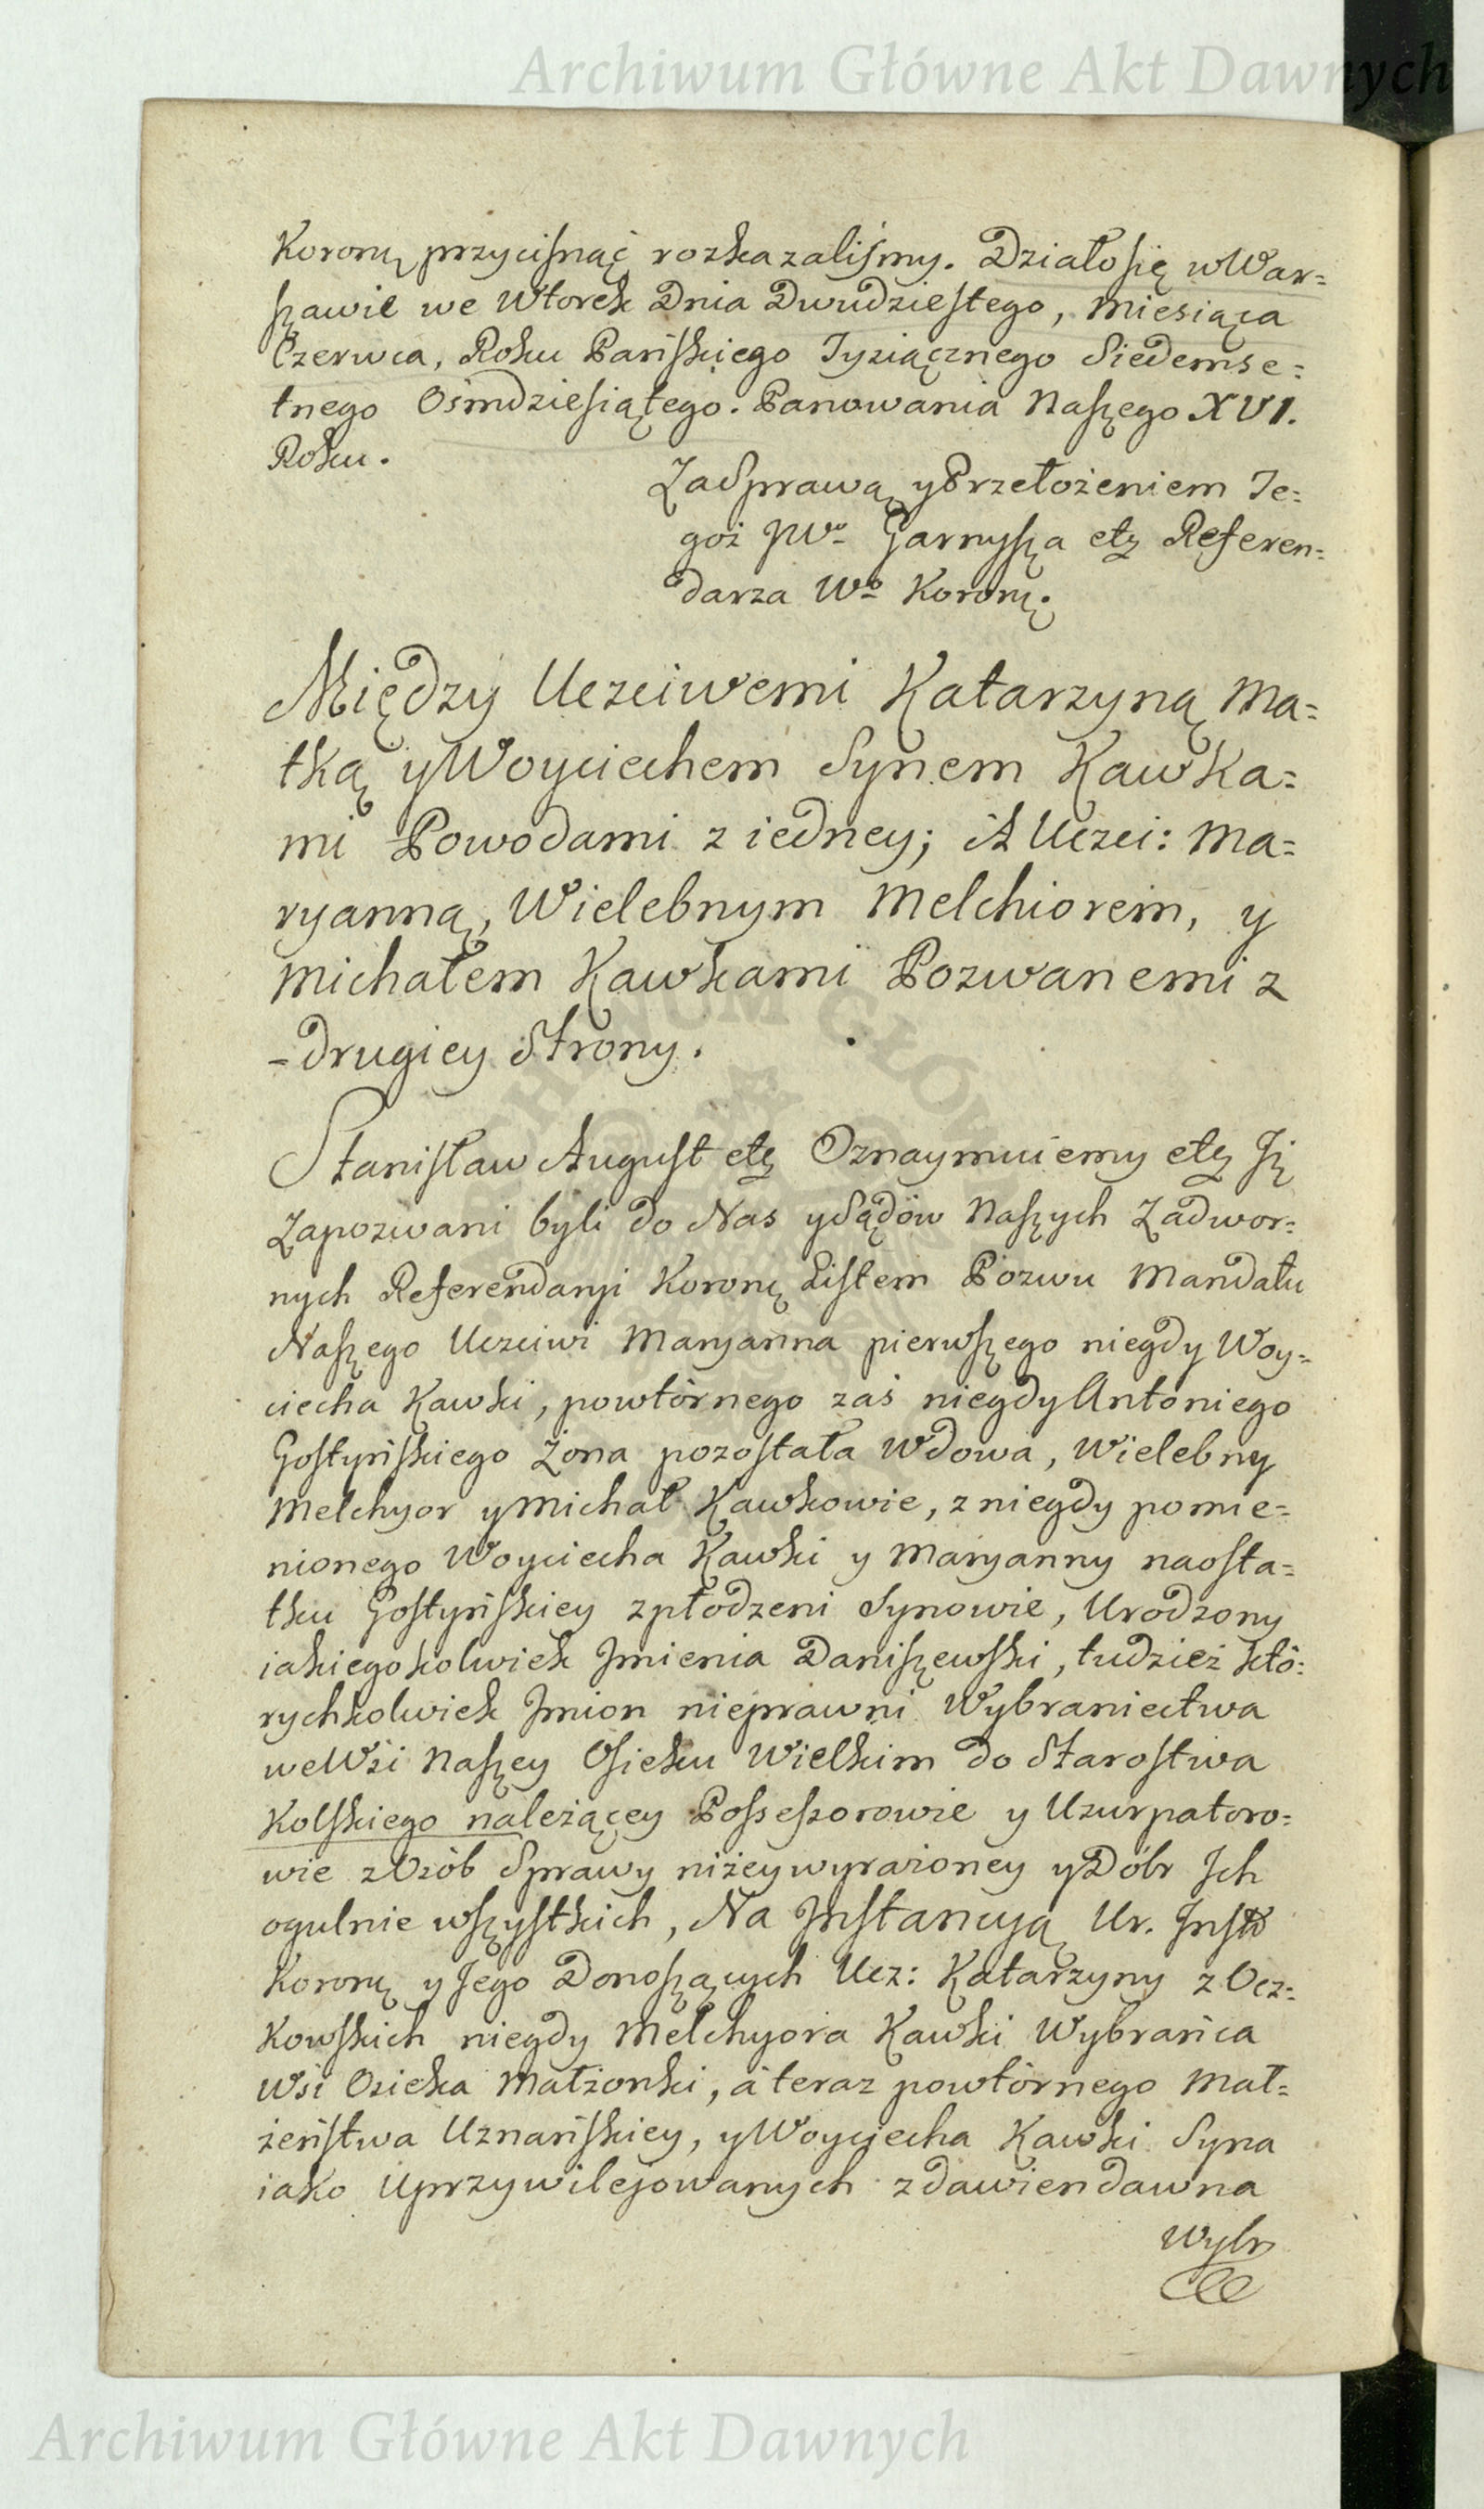 Archiwum Główne Akt Dawnych
Koronę przycisnąć rozkazaliśmy. Działo się w War=
szawie we Wtorek Dnia Dwudziestego, Miesiąca
Czerwca, Roku Pańskiego Tysiącznego Siedemse=
tnego Ośmdziesiątego. Panowania Naszego XVI.
Roku.
Za Sprawą y Przełożeniem Te=
goż JWo Garnysza etc Referen=
darza Wo Koronę.
Między Uczciwemi Katarzyną Ma=
tką y Woyciechem Synem Kawka=
mi Powodami z iedney; A Uczci: Ma=
ryanną, Wielebnym Melchiorem, y
Michałem Kawkami Pozwanemi z
-drugiey Strony.
Stanisław August etc Oznaymuiemy etc Iż
Zapozwani byli do Nas y Sądów Naszych Zadwor=
nych Referendaryi Koronę Listem Pozwu Mandatu
Naszego Uczciwi Maryanna pierwszego niegdy Woy=
ciecha Kawki, powtórnego zaś niegdy Antoniego
Gostyńskiego Żona pozostała Wdowa, Wielebny
Melchyor y Michał Kawkowie, z niegdy pomie=
nionego Woyciecha Kawki y Maryanny naosta=
tku Gostyńskiey zpłodzeni Synowie, Urodzony
iakiegokolwiek Jmienia Daniszewski, tudzież któ=
rychkolwiek Jmion nieprawni Wybraniectwa
we Wśi Naszey Osieku Wielkim do Starostwa
Kolskiego należącey Possessorowie y Uzurpatoro=
wie z Osób Sprawy niżey wyrażoney y Dóbr Ich
ogulnie wszystkich, Na Jnstancyą Ur. Jnstó
Koronę y Jego Donoszących Ucz: Katarzyny z Ocz=
Kowskich niegdy Melchyora Kawki Wybrańca
Wśi Osieka Małżonki, á teraz powtórnego Mał=
żeństwa Uznańskiey, y Woyciecha Kawki Syna
iako Uprzywilejowanych zdawiendawna
Wybr
Archiwum Główne Akt Dawnych